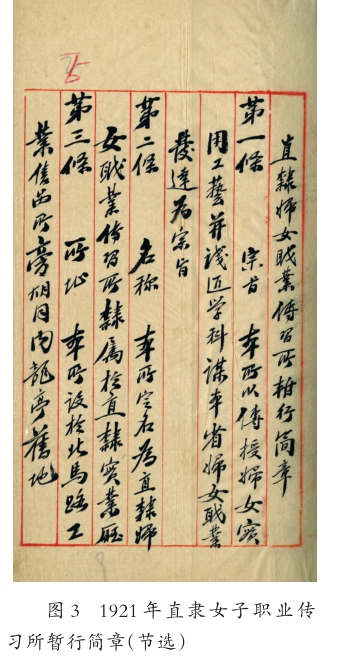 直隸婦女職業傳習所暫行簡章
第一條 宗旨 本所以傳授婦女實
用工藝并淺近学科謀本省婦女職業
發達為宗旨
第二條 名称 本所定名為直隸婦
女職業傳習所隸屬於直隸實業廳
第三條 所址 本所設於北馬路工
業售品所旁胡同内龍亭舊地
图3 1921年直隶女子职业传
习所暂行简章(节选)